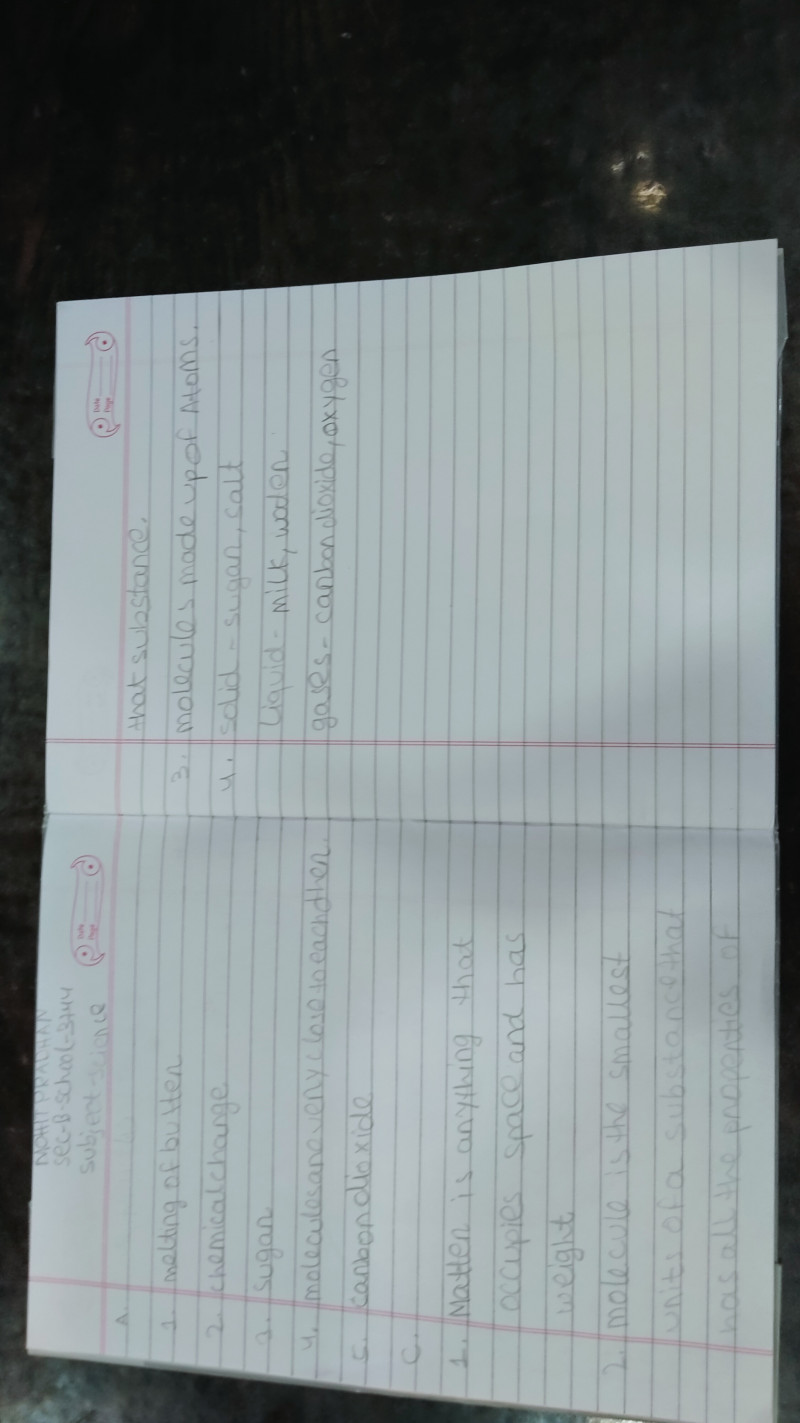 PRADHAN
Sec-B school-STHY
subject-science
Date
Page
A.
1. melting of butter
2. chemical change
3. sugar
4. molecules are very close to each other.
5. carbon dioxide
C.
1. Matter is anything that
occupies space and has
weight
2. molecule is the smallest
units of a substance that
has all the properties of
Date
Page
that substance.
3. molecules made up of Atoms.
4. solid - sugar, salt
Liquid - milk, water
gases - carbon dioxide, oxygen